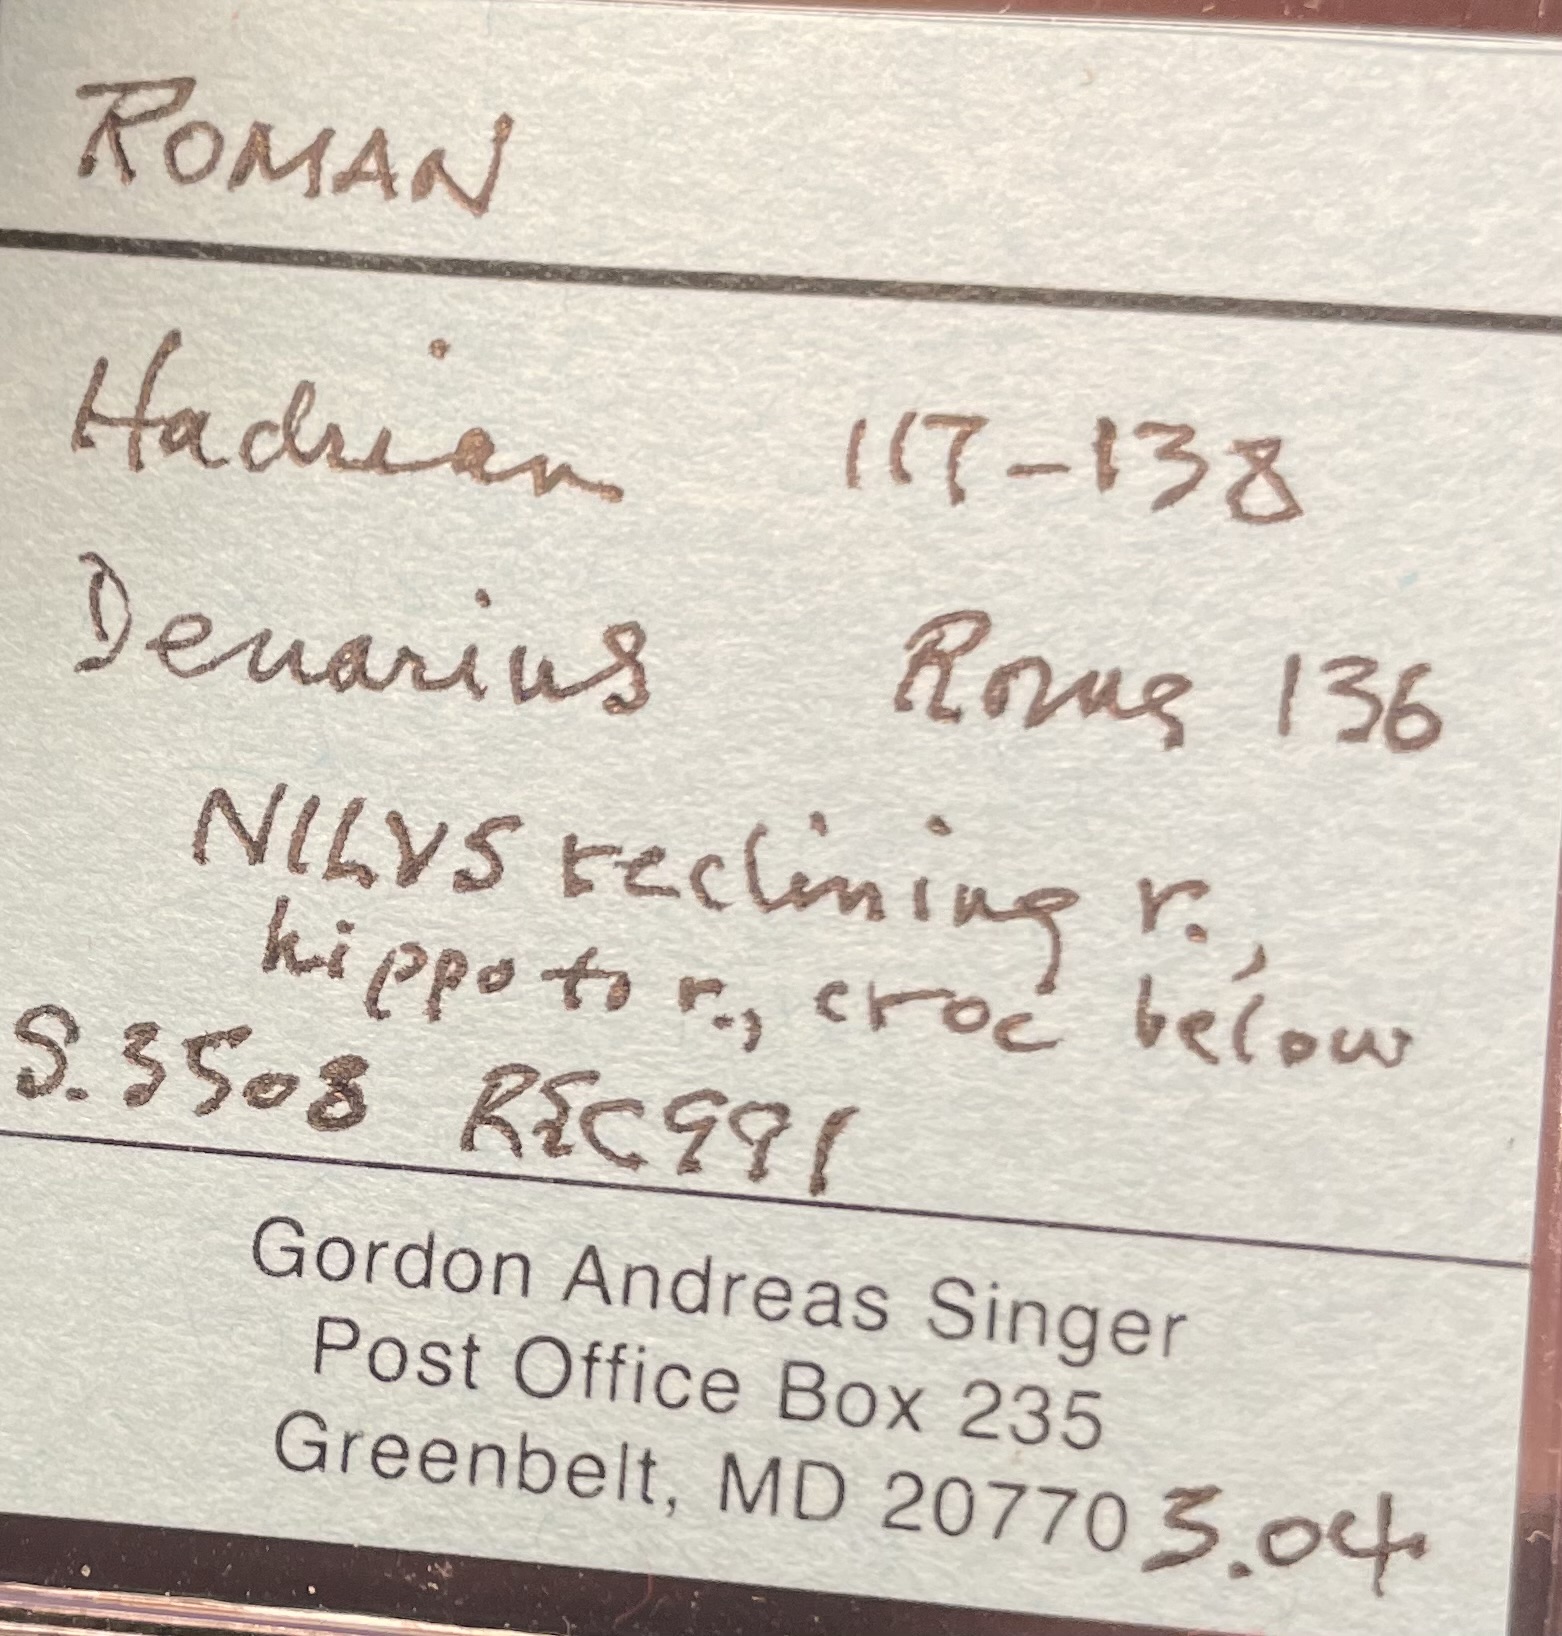 ROMAN
Hadrian 117-138
Denarius Rome 136
NILVS reclining r.,
hippo to r., croc below
S.3508 RSC991
Gordon Andreas Singer
Post Office Box 235
Greenbelt, MD 20770 3.04